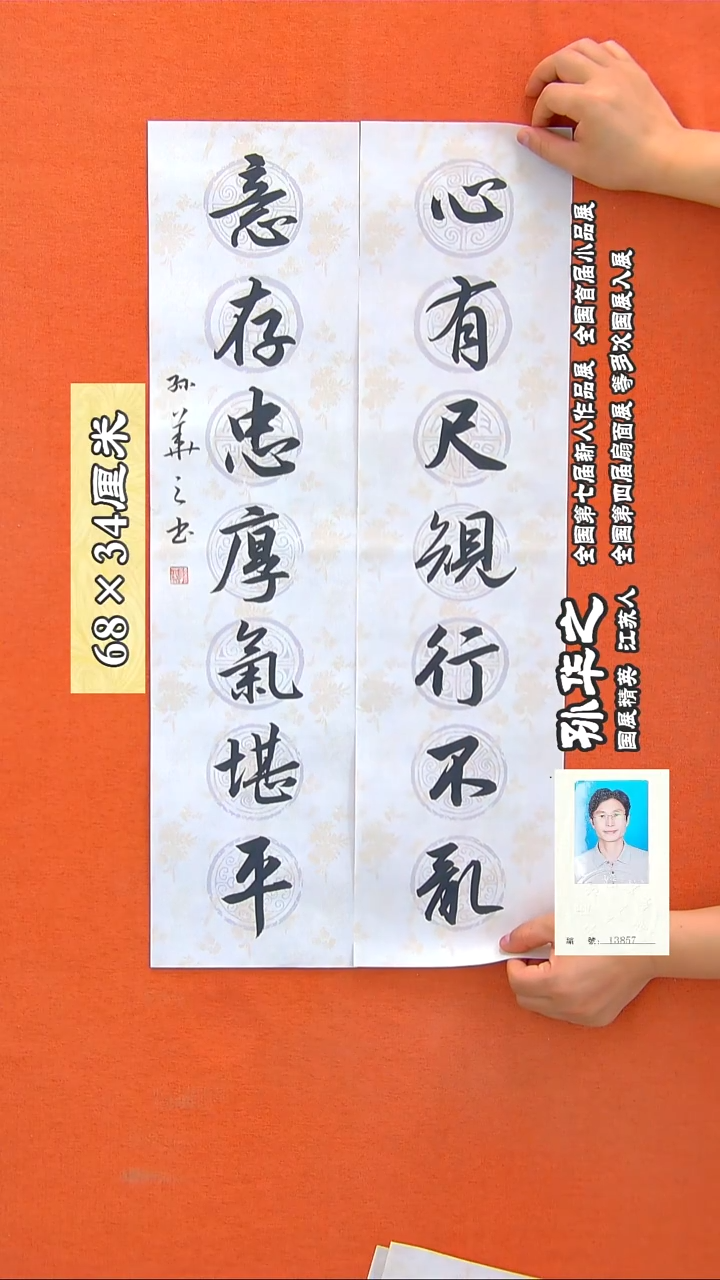 心有尺規行不亂
意存忠厚氣堪平
孙華之书
68×34厘米
全国第七届新人作品展 全国首届小品展
全国第四届扇面展 等多次国展入展
孙华之
国展精英 江苏人
編號：13857